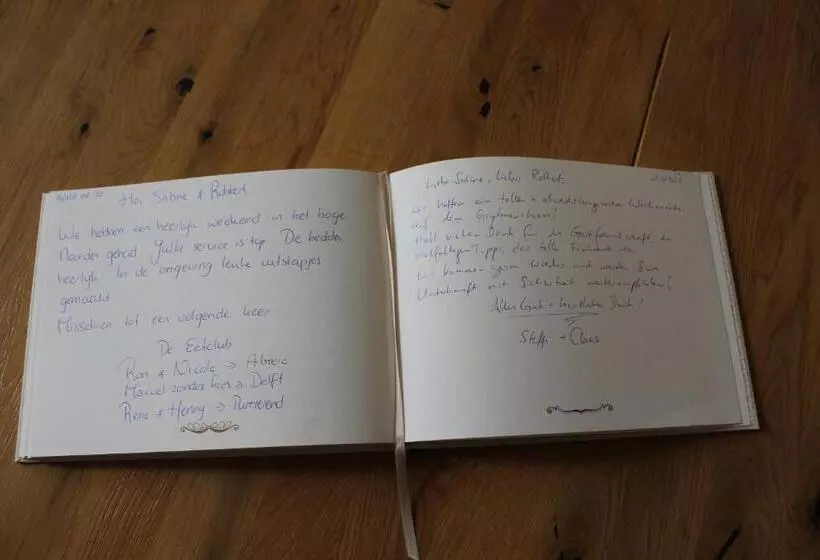 Hoi Sabine & Robbert
We hebben een heerlijk weekend in het hoge
Noorden gehad Jullie service is top De bedden
heerlijk In de omgeving leuke uitstapjes
gemaakt
Misschien tot een volgende keer
De Eetclub
Ron & Nicole → 
Marcel zonder kees → Delft
Rene & Henny → Purmerend
Liebe Sabine, Lieber Robbert,
wir hatten ein tolles + Wochenende
auf dem
Habt vielen Dank für die Gastfreundschaft, die
vielfältigen Tipps, das tolle Frühstück
Wir kommen gerne wieder und werden Eure
Unterkunft mit Sicherheit weiterempfehlen!
Alles Gute + herzlichen Dank!
Steffi + Claus